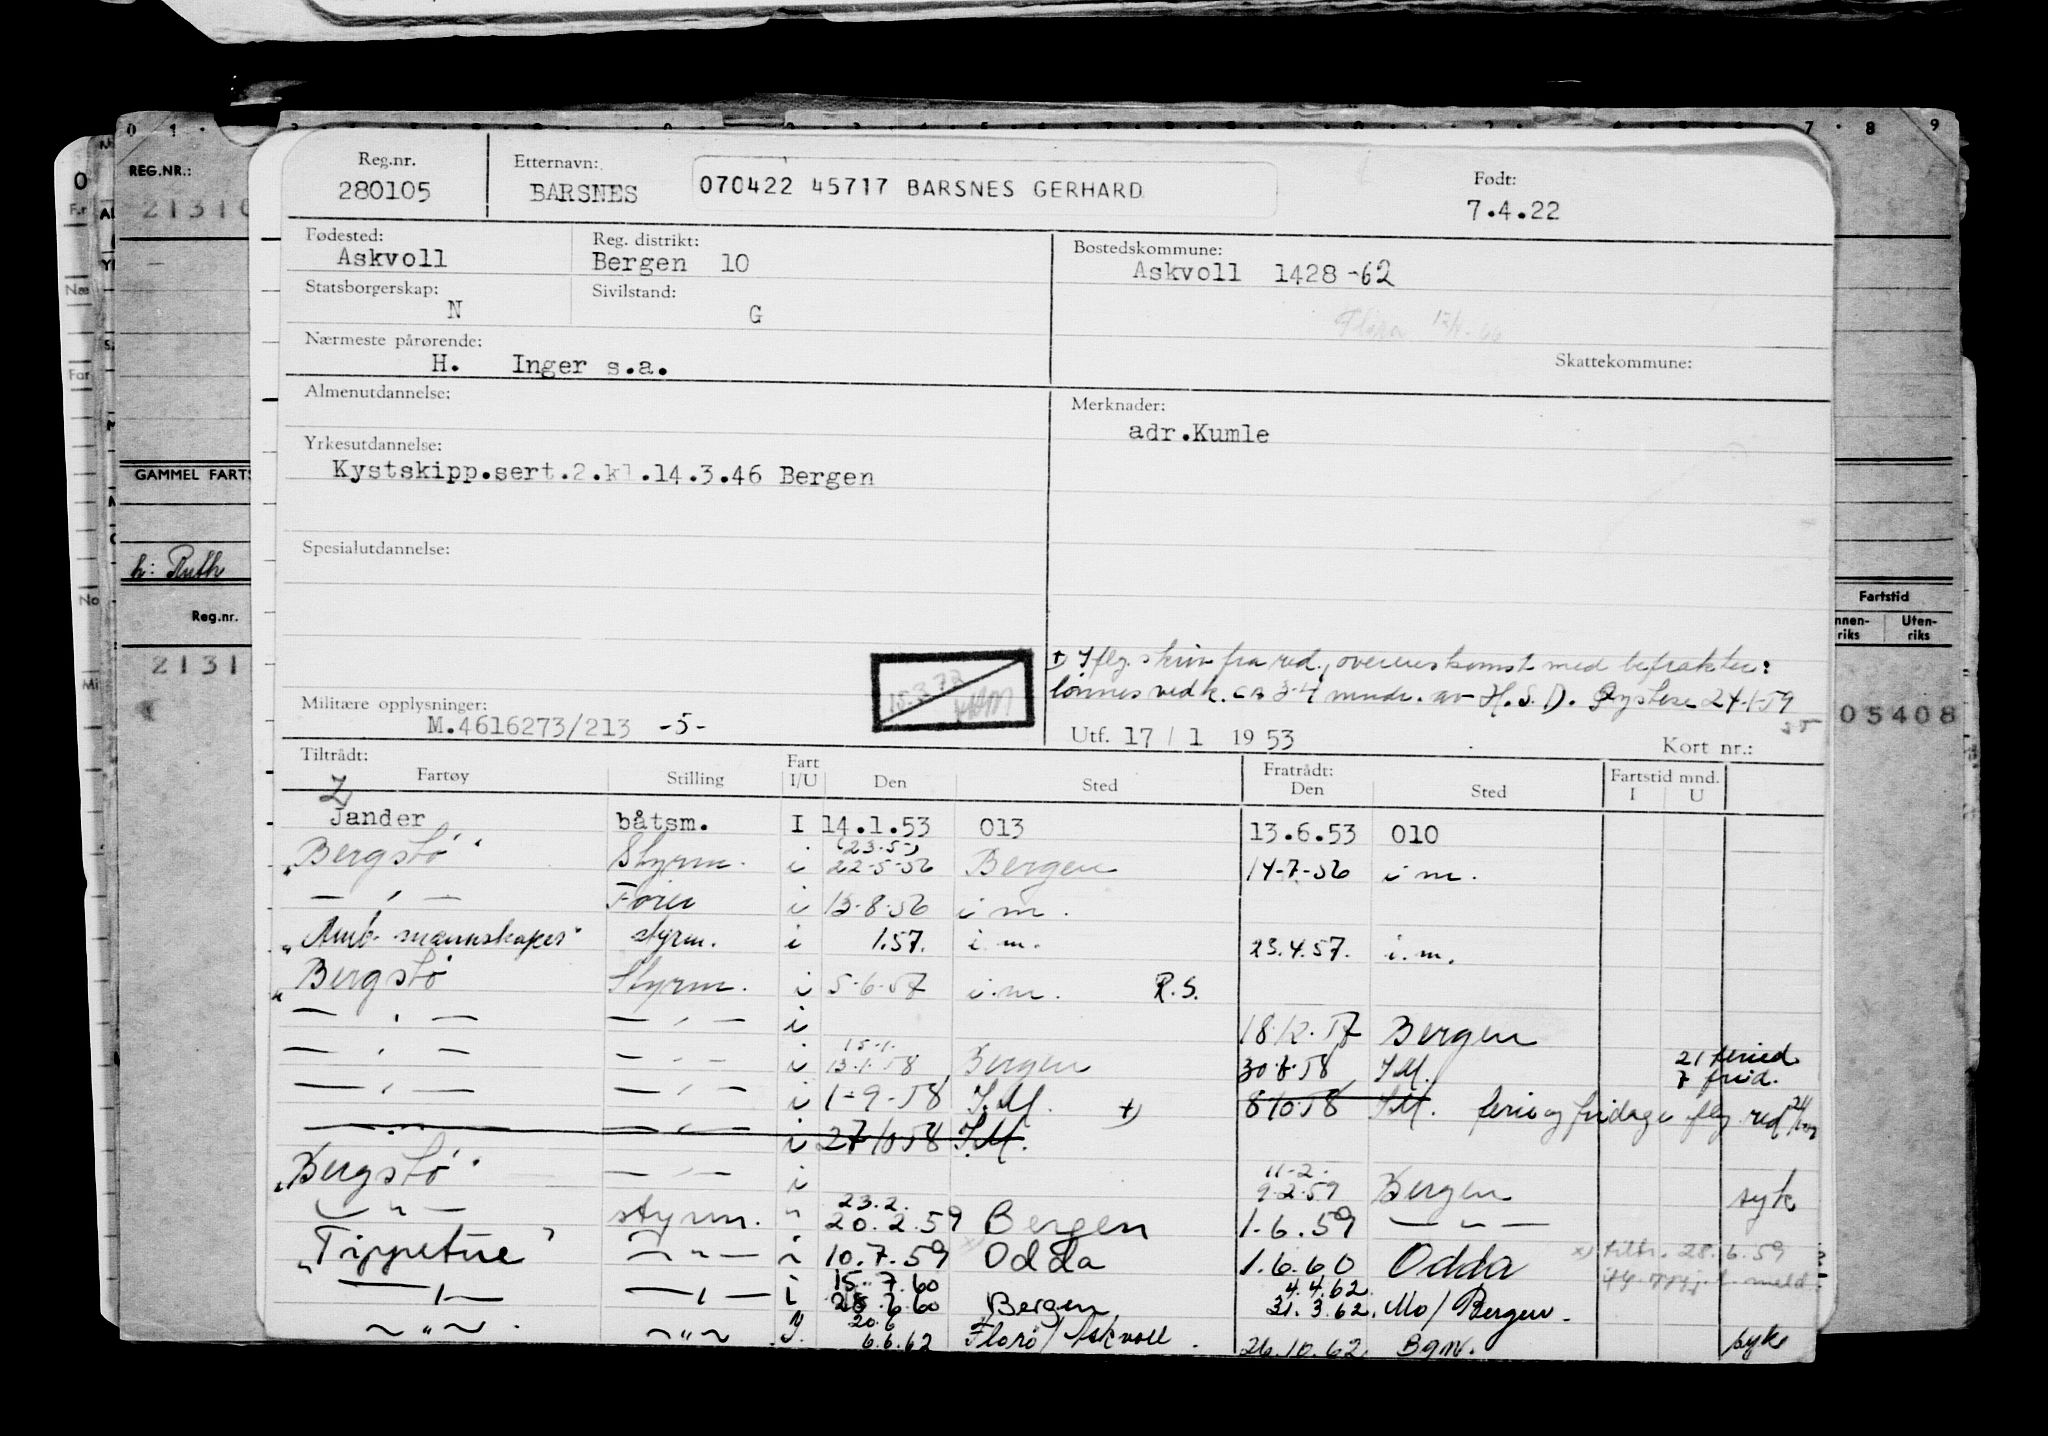 0 1 7 8 9
REG.NR.:
21310
GAMMEL FARTS
h: Ruth
Reg.nr.
2131
Fartstid
nnenriks Utenriks
05408
Reg.nr. Etternavn: Født:
280105 BARSNES 070422 45717 BARSNES GERHARD 7.4.22
Fødested: Reg. distrikt: Bostedskommune:
Askvoll Bergen 10 Askvoll 1428 -62
Statsborgerskap: Sivilstand:
N G
Nærmeste pårørende: Skattekommune:
H. Inger s.a.
Almenutdannelse: Merknader:
adr.Kumle
Yrkesutdannelse:
Kystskipp.sert.2.kl.14.3.46 Bergen
Spesialutdannelse:
+) Iflg. skriv fra red., overenskomst med befrakter:
lønnes ved k. ca 3-4 mndr. av H.S.D. 24-1-59
15.3.73
Militære opplysninger:
M.4616273/213 -5- Utf. 17 / 1 1953 Kort nr.:
Tiltrådt: Fart Fratrådt: Fartstid mnd.
Fartøy Stilling I/U Den Sted Den Sted I U
Jander båtsm. I 14.1.53 013 13.6.53 010
(23.5)
"Bergstø" Styrm. i 22-5-56 Bergen 14-7-56 i m.
— " — Fører i 13-8-56 i m.
"Amb. mannskaper" styrm. i 1.57. i.m. 23.4.57. i.m.
"Bergstø Styrm. i 5-6-57 i.m. R.S.
— " — — " — i 18.12.57 Bergen
15.1. 21 feried.
— " — — " — i 13.1.58 Bergen 30.8.58 I.M. 7 frid.
— " — — " — i 1-9-58 I.M. +) 8 10 58 I.M. ferie og fridage iflg. red
— " — — " — i 27 10 58 I.M.
11-2.
"Bergstø" — " — i 9.2.59 Bergen syk
23.2.
— " — styrm. " 20.2.59 Bergen 1.6.59 — " —
"Tippetue" — " — i 10.7.59 Odda 1.6.60 Odda x) tiltr. 28.6.59
15.7.60 4.4.62.
— " — — " — i 28.6.60 Bergen 31.3.62. Mo/Bergen.
20.6
— " — — " — i 6.6.62 Florø/Askvoll 26.10.62 Bgn. syk